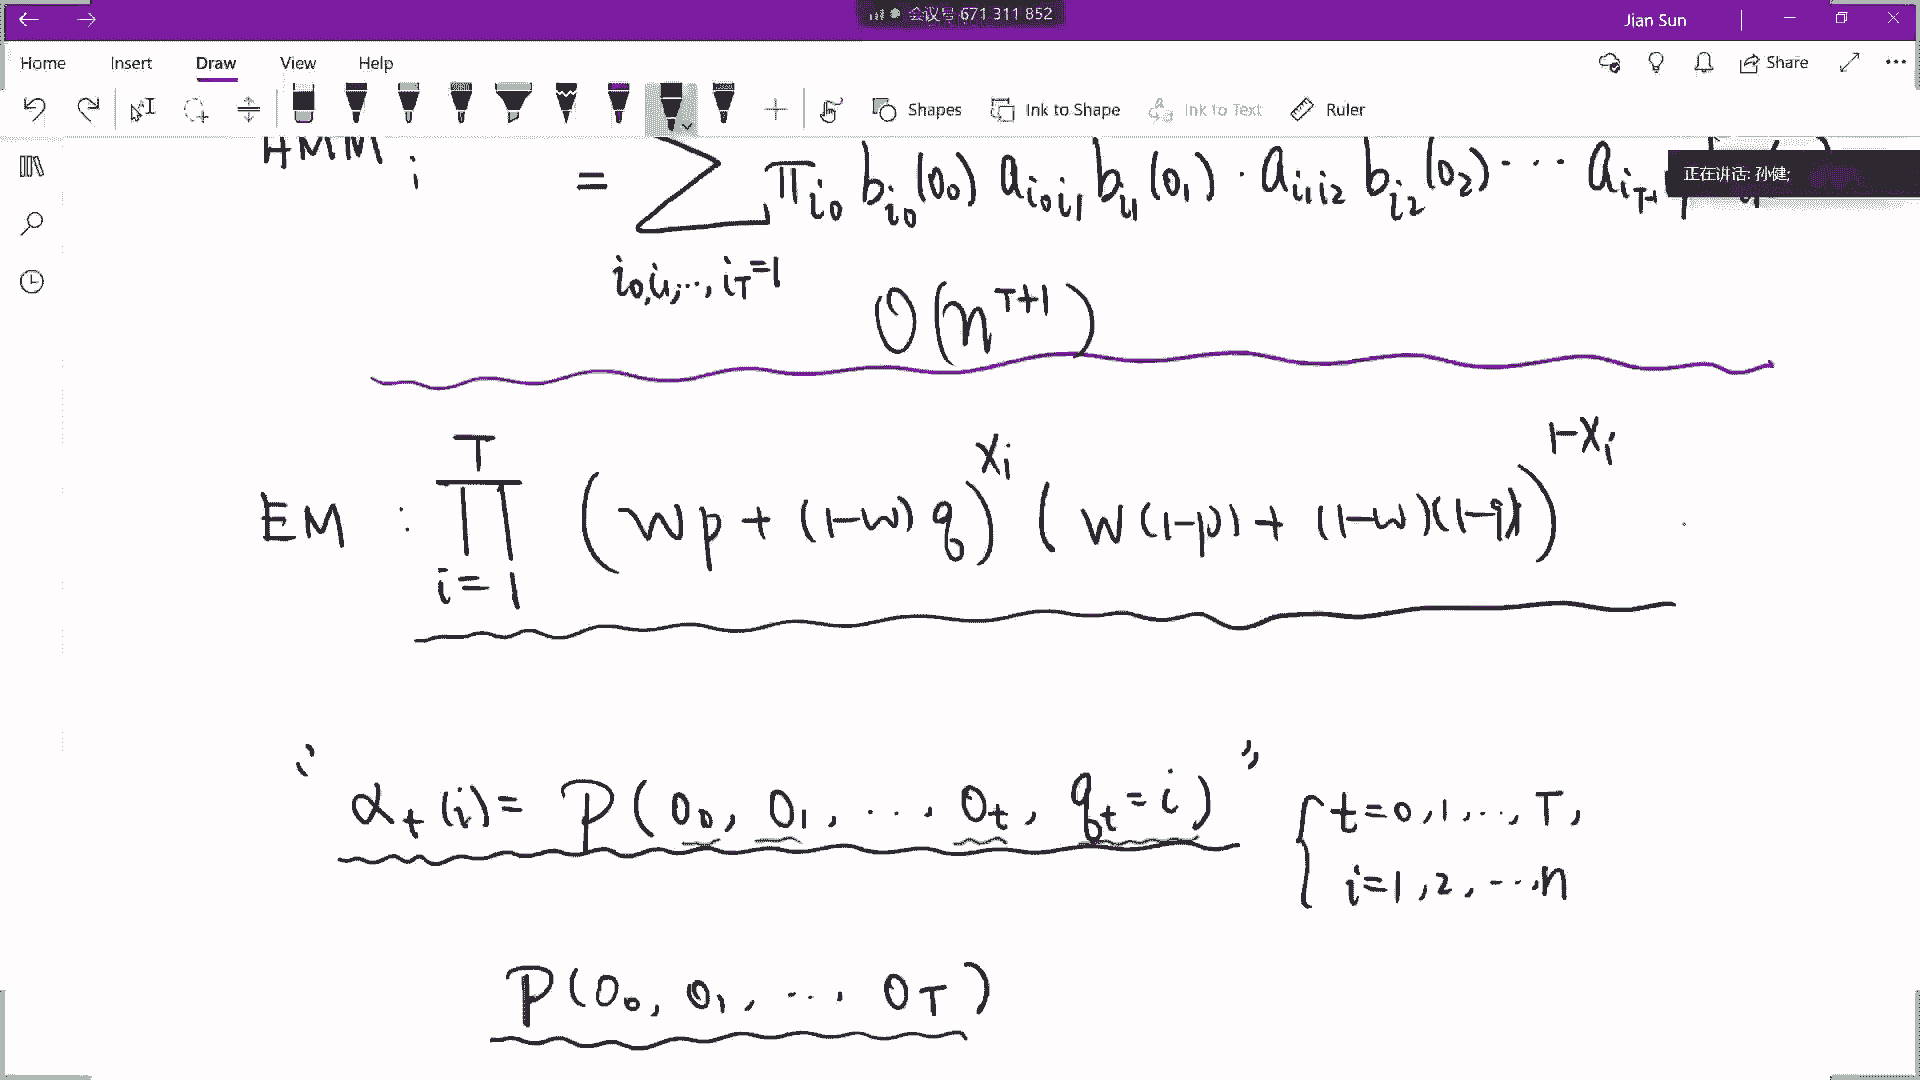 会议号 671 311 852
Jian Sun
Home Insert Draw View Help
Share
Shapes Ink to Shape Ink to Text Ruler
正在讲话: 孙健;
HMM i = ∑ π_{i_0} b_{i_0}(o_0) a_{i_0 i_1} b_{i_1}(o_1) · a_{i_1 i_2} b_{i_2}(o_2) ··· a_{i_{T-1}
i_0, i_1, ..., i_T = 1
O(n^{T+1})
EM : ∏_{i=1}^{T} (wp + (1-w) q)^{x_i} (w(1-p) + (1-w)(1-q))^{1-x_i}
“ α_t(i) = P(o_0, o_1, ..., o_t, q_t = i) ” { t = 0, 1, ..., T,
i = 1, 2, ..., n
P(o_0, o_1, ..., o_T)